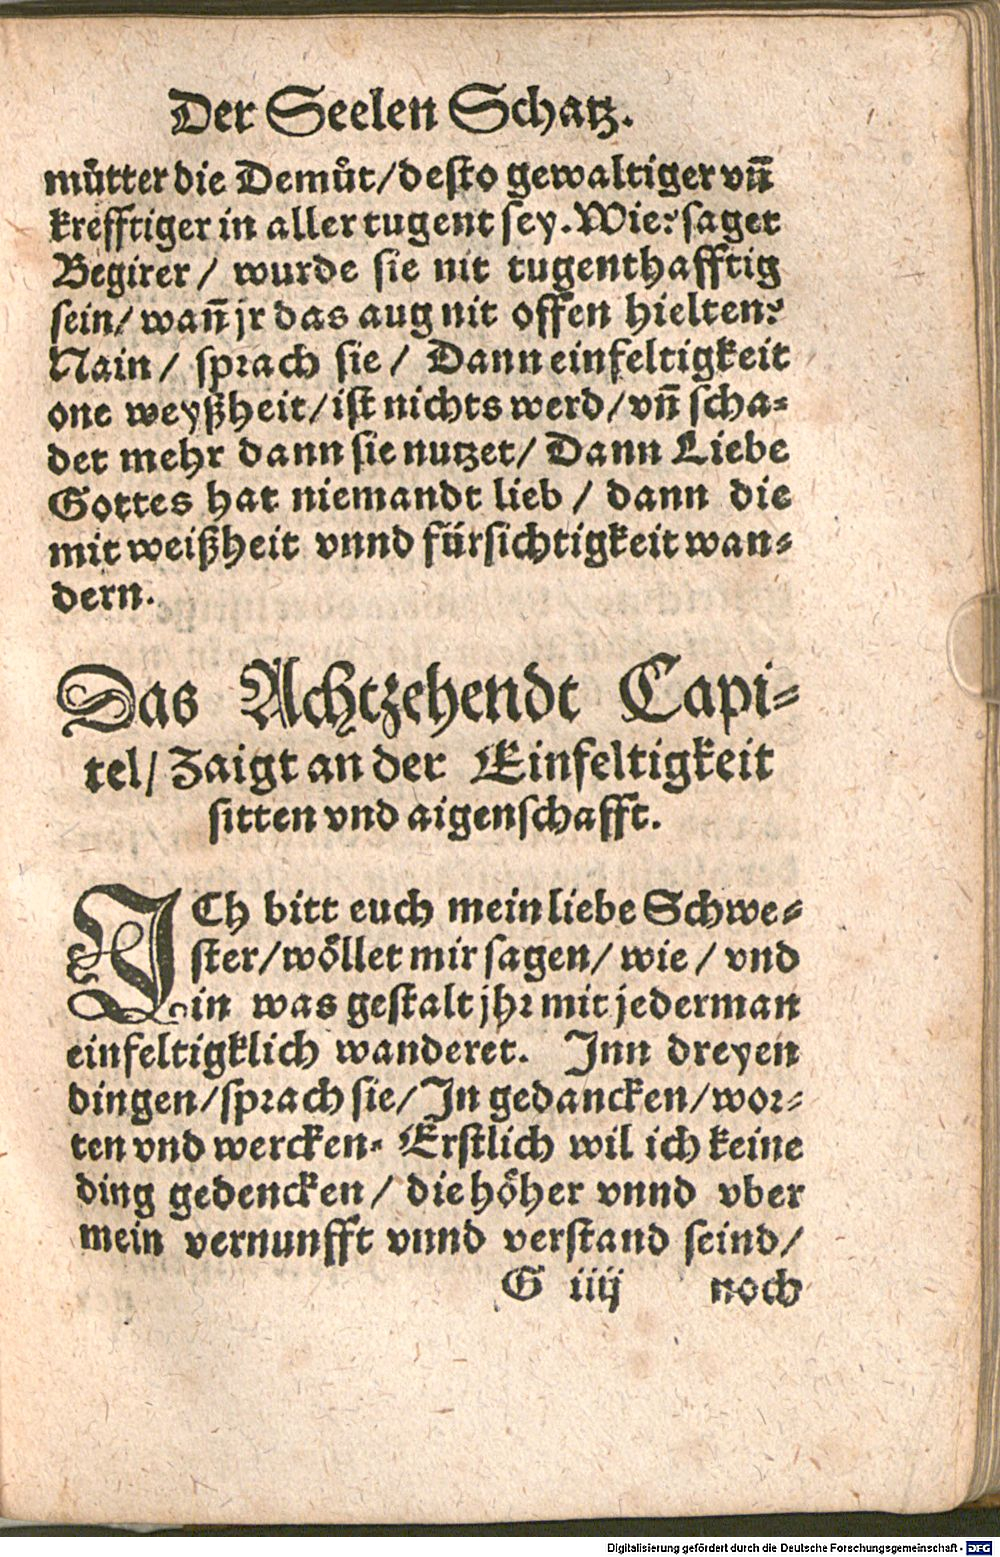 Der Seelen Schatz.
můtter die Demůt/desto gewaltiger vñ
krefftiger in aller tugent sey. Wie? saget
Begirer/ wurde sie nit tugenthafftig
sein/ wañ jr das aug nit offen hielten?
Nain/ sprach sie/ Dann einfeltigkeit
one weyßheit/ist nichts werd/vñ scha-
det mehr dann sie nutzet/ Dann Liebe
Gottes hat niemandt lieb/ dann die
mit weißheit vnnd fürsichtigkeit wan-
dern.
Das Achtzehendt Capi-
tel/ Zaigt an der Einfeltigkeit
sitten vnd aigenschafft.
ICh bitt euch mein liebe Schwe-
ster/wöllet mir sagen/ wie/ vnd
in was gestalt jhr mit jederman
einfeltigklich wanderet. Inn dreyen
dingen/sprach sie/ In gedancken/wor-
ten vnd wercken. Erstlich wil ich keine
ding gedencken/ die höher vnnd vber
mein vernunfft vnnd verstand seind/
G iiij noch
Digitalisierung gefördert durch die Deutsche Forschungsgemeinschaft - DFG